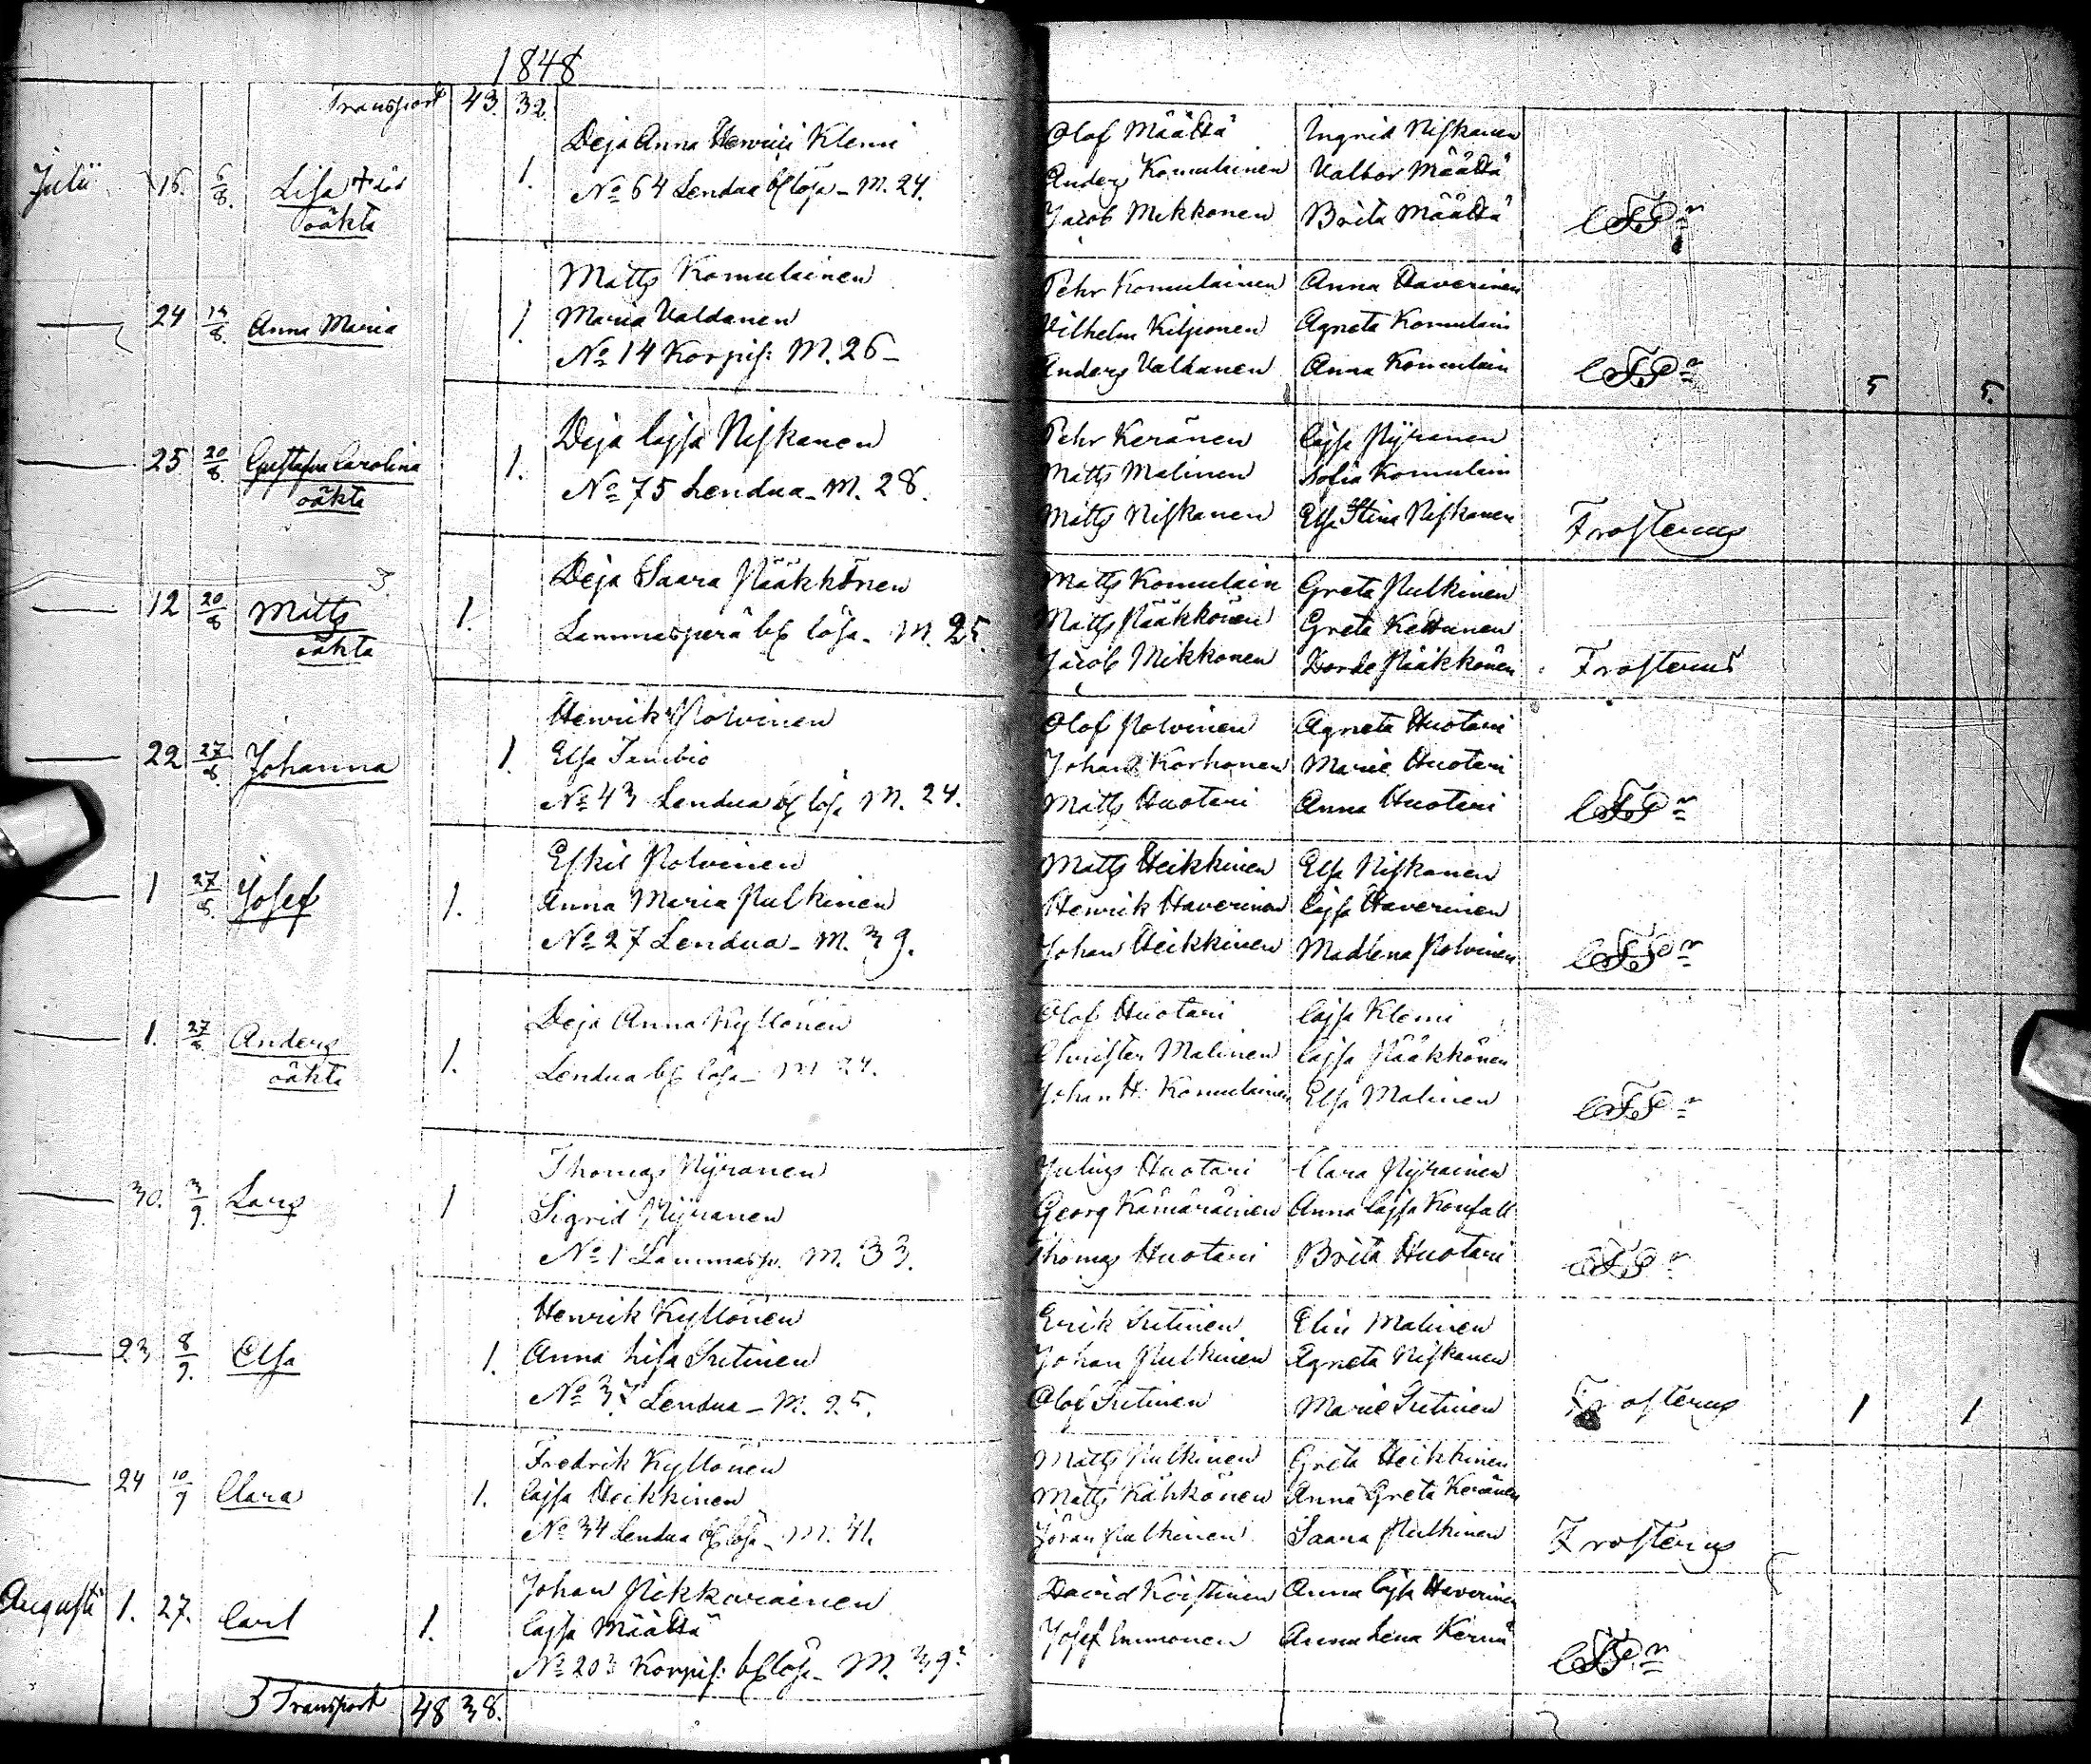 1848
Transport 43. 32.
Julii 16. 6/8. Lisa + död 1. Deja Anna Henrici Klemi Olof Määttä Ingrid Niskanen
oäkta No 64 Lendua bf lösa - M. 24. Anders Komulainen Valbor Määttä
Jacob Mikkonen Brita Määttä
Matts Komulainen Pehr Komulainen Anna Haverinen
24 14/8. Anna Maria 1. Maria Valdanen Vilhelm Kilponen Agneta Komulain
No 14 Korpis: M. 26 - Anders Valdanen Anna Komulain 5 5.
Deja Cajsa Niskanen Pehr Keränen Cajsa Pyranen
25 20/8. Gustafva Carolina 1. No 75 Lendua - M. 28. Matts Malinen Sofia Komulain
oäkta Matts Niskanen Elsa Stina Niskanen Frosterus
Deja Saara Pääkkönen Matts Komulain Greta Pulkinen
12 20/8 Matts 1. Lammasperä bf lösa - M. 25. Matts Pääkkönen Greta Kettunen
oäkta Jacob Mikkonen Dorde Pääkkönen Frosterus
Henrik Polvinen Olof Polvinen Agneta Huotari
22 27/8. Johanna 1. Elsa Johan Korhonen Maria Huotari
No 43 Lendua bf lös. M. 24. Matts Huotari Anna Huotari
Eskil Polvinen Matts Heikkinen Elsa Niskanen
1 27/8. Josef 1. Anna Maria Pulkinen Henrik Haverinen Cajsa Haverinen
No 27 Lendua - M. 39. Johan Heikkinen Madlena Polvinen
Deja Anna Kyllönen Olof Huotari Cajsa Klemi
1. 27/8. Anders 1. Lendua bf lösa - M 24. Christer Malinen Cajsa Pääkkönen
oäkta Johan H. Komulainen Elsa Malinen
Thomas Pyranen Julius Huotari Clara Pyrainen
30. 3/9. Lars 1 Sigrid Pyranen Georg Kämäräinen Anna Cajsa
No 1 Lammasp. M. 33. Thomas Huotari Brita Huotari
Henrik Kyllönen Erik Sutinen Elin Malinen
23 8/9. Elsa 1. Anna Lisa Sutinen Johan Pulkinen Agneta Niskanen
No 37 Lendua - M. 25. Olof Sutinen Maria Sutinen Frosterus 1 1
Fredrik Kyllönen Matts Pulkinen Greta Heikkinen
24 10/9 Clara 1. Cajsa Heikkinen Matts Kähkönen Anna Greta Keränen
No 34 Lendua bf lösa - M. 41. Jöran Pulkinen Saara Pulkinen Frosterus
Johan Pikkarainen David Koistinen Anna Cajsa Haverinen
Augusti 1. 27. Carl 1. Cajsa Määttä Josef Immonen Anna Lena
No 20 Korpis: bf lösa - M. 39
Transport 48 38.